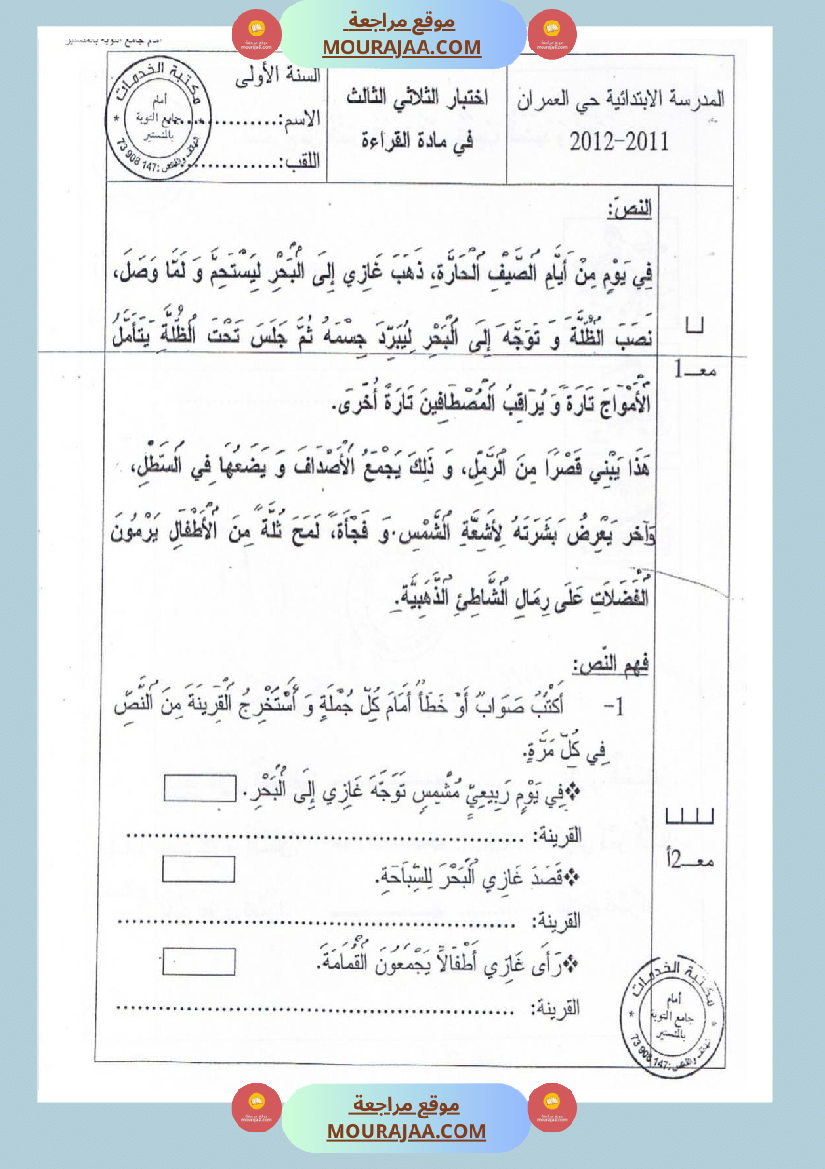 موقع مراجعة
MOURAJAA.COM
المدرسة الابتدائية حي العمران
2012-2011
اختبار الثلاثي الثالث
في مادة القراءة
السنة الأولى
الاسم:...............
اللقب:...............
مكتبة الخدمات
أمام
جامع التوبة
بالمنستير
الهاتف والفاكس: 147 908 73
النص:
فِي يَوْمٍ مِنْ أَيَّامِ الصَّيْفِ الْحَارَّةِ، ذَهَبَ غَازِي إِلَى الْبَحْرِ لِيَسْتَحِمَّ وَ لَمَّا وَصَلَ،
نَصَبَ الظُّلَّةَ وَ تَوَجَّهَ إِلَى الْبَحْرِ لِيُبَرِّدَ جِسْمَهُ ثُمَّ جَلَسَ تَحْتَ الظُّلَّةِ يَتَأَمَّلُ
معـ1
الْأَمْوَاجَ تَارَةً وَ يُرَاقِبُ الْمُصْطَافِينَ تَارَةً أُخْرَى.
هَذَا يَبْنِي قَصْرًا مِنَ الرَّمْلِ، وَ ذَلِكَ يَجْمَعُ الْأَصْدَافَ وَ يَضَعُهَا فِي السَّطْلِ،
وَآخر يَعْرِضُ بَشَرَتَهُ لِأَشِعَّةِ الشَّمْسِ. وَ فَجْأَةً، لَمَحَ ثُلَّةً مِنَ الْأَطْفَالِ يَرْمُونَ
الْفَضَلَاتِ عَلَى رِمَالِ الشَّاطِئِ الذَّهَبِيَّةِ.
فهم النّص:
1- أَكْتُبُ صَوَابٌ أَوْ خَطَأٌ أَمَامَ كُلِّ جُمْلَةٍ وَ أَسْتَخْرِجُ الْقَرِينَةَ مِنَ النَّصِّ
فِي كُلِّ مَرَّةٍ.
❖فِي يَوْمٍ رَبِيعِيٍّ مُشْمِسٍ تَوَجَّهَ غَازِي إِلَى الْبَحْرِ.
القرينة: ......................................................
معـ2أ
❖قَصَدَ غَازِي الْبَحْرَ لِلسِّبَاحَةِ.
القرينة: ......................................................
❖رَأَى غَازِي أَطْفَالًا يَجْمَعُونَ الْقُمَامَةَ.
القرينة: ......................................................
مكتبة الخدمات
أمام
جامع التوبة
بالمنستير
الهاتف والفاكس: 147 908 73
موقع مراجعة
MOURAJAA.COM